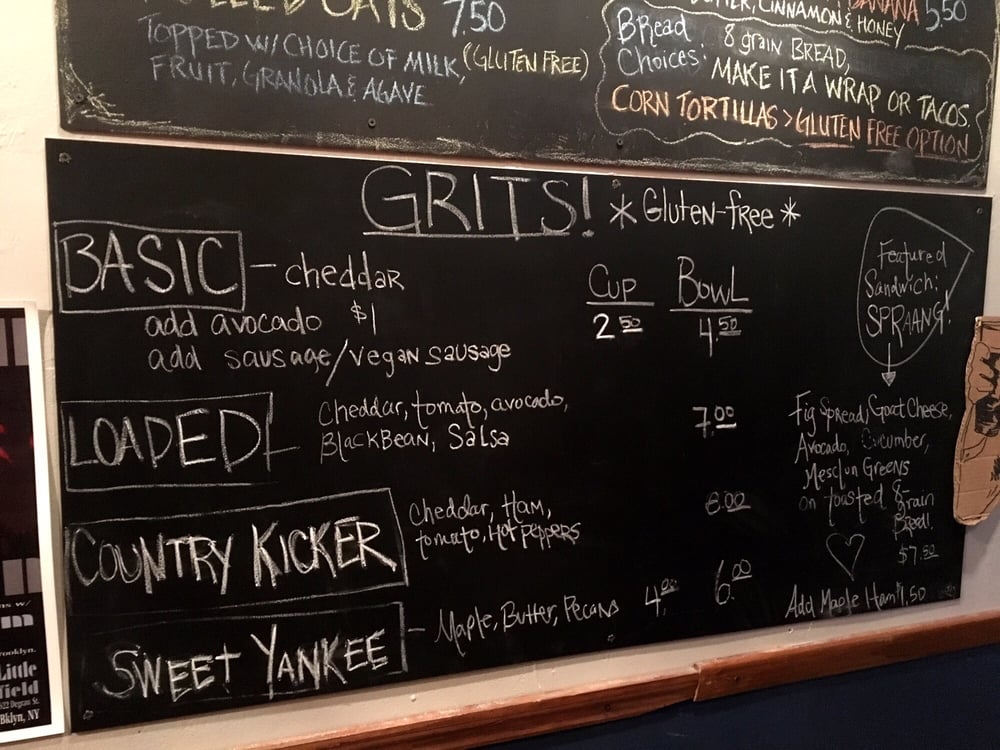 OATS 7.50
TOPPED W/ CHOICE OF MILK, (GLUTEN FREE)
FRUIT, GRANOLA & AGAVE
BANANA 5.50
BUTTER, CINNAMON & HONEY
BREAD 8 grain BREAD,
Choices: MAKE IT A WRAP OR TACOS
CORN TORTILLAS > GLUTEN FREE OPTION
GRITS! * Gluten-free *
BASIC - cheddar
add avocado $1
add sausage/vegan sausage
CUP BOWL
2.50 4.50
LOADED! - Cheddar, tomato, avocado,
BLACKBEAN, Salsa
7.00
COUNTRY KICKER Cheddar, Ham,
tomato, Hot peppers
6.00
SWEET YANKEE - Maple, Butter, Pecans 4.00 6.00
Featured
Sandwich:
SPRAANG!
Fig Spread, Goat Cheese,
Avocado, Cucumber,
Mesclun Greens
on toasted 8 grain
Bread!
$7.50
Add Maple Ham $1.50
ns w/
m
rooklyn.
Little
field
622 Degraw St.
Bklyn, NY